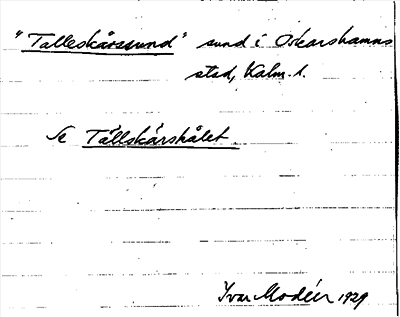 "Talleskärssund" sund i Oskarshamns
stad, Kalm. l.
Se Tallskärshålet
Ivar Modéer 1929